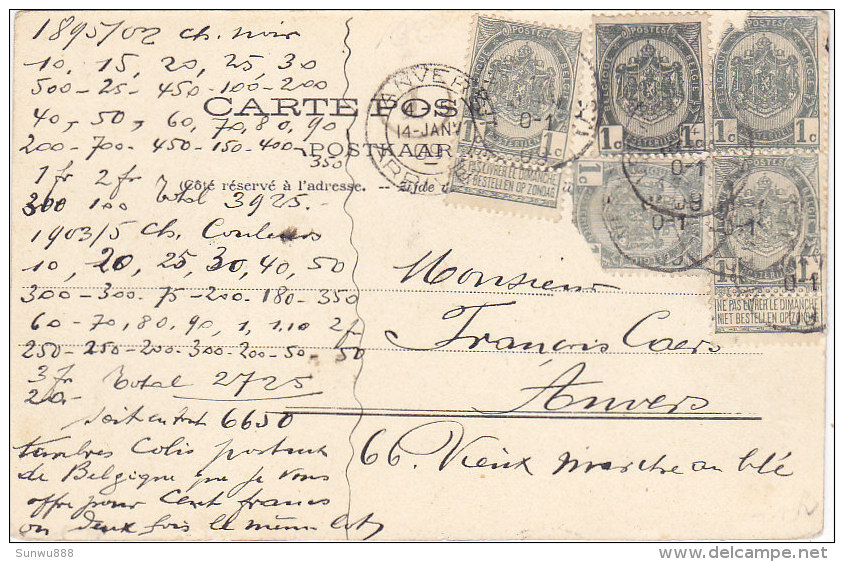 1895/02 ch. noir
10, 15, 20, 25, 30
500 - 25 - 450 - 100 - 200
40, - 50, - 60, 70, 80, 90
200 - 700 - 450 - 150 - 400 - 350
1 fr 2 fr
300 100 Total 3925.-
1903/5 Ch. Couleurs
10, 20, 25, 30, 40, 50
300 - 300 - 75 - 200 - 180 - 350
60 - 70, 80, 90, 1, 1,10 2 fr
250 - 250 - 200 - 300 - 200 - 50 - 50
3 fr Total 2725
20.-
soit en tout 6650
timbres Colis postaux
de Belgique que je vous
offre pour Cent francs
ou deux fois le même lot
CARTE POS
POSTKAAR
Côté réservé à l'adresse. -- Zijde
Monsieur
François Caers
Anvers
66. Vieux marché au blé
ANVERS
14 JANV
POSTES
BELGIQUE
1c 1c
NE PAS LIVRER LE DIMANCHE
NIET BESTELLEN OP ZONDAG
POSTES
BELGIQUE
1c 1c
POSTES
BELGIQUE
1c 1c
1c
1c 1c
NE PAS LIVRER LE DIMANCHE
NIET BESTELLEN OP ZONDAG
Sunwu888
delcampe.net